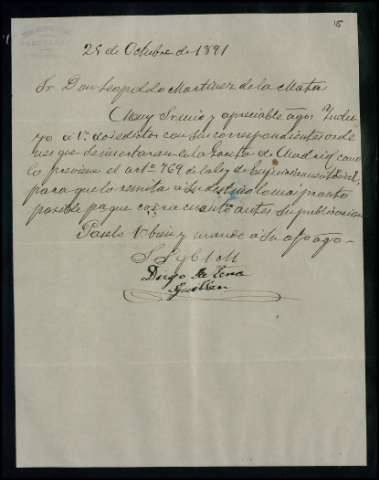 15
25 de Octubre de 1891
Sr. Don Leopoldo Martinez de la Mata
Muy Sr. mio y apreciable ago:
yo a V. dos edictos con su correspondiente orde
que se insertaran en la Gaceta de Madrid como
lo previene el artº 769 de la Ley de Enjuiciamiento Civil,
para que lo remita a su destino lo mas pronto
posible pa que corra cuanto antes su publicacion
Paselo V. bien y mande a su afo ago
S S q b s M
Diego de Tena
Guillen